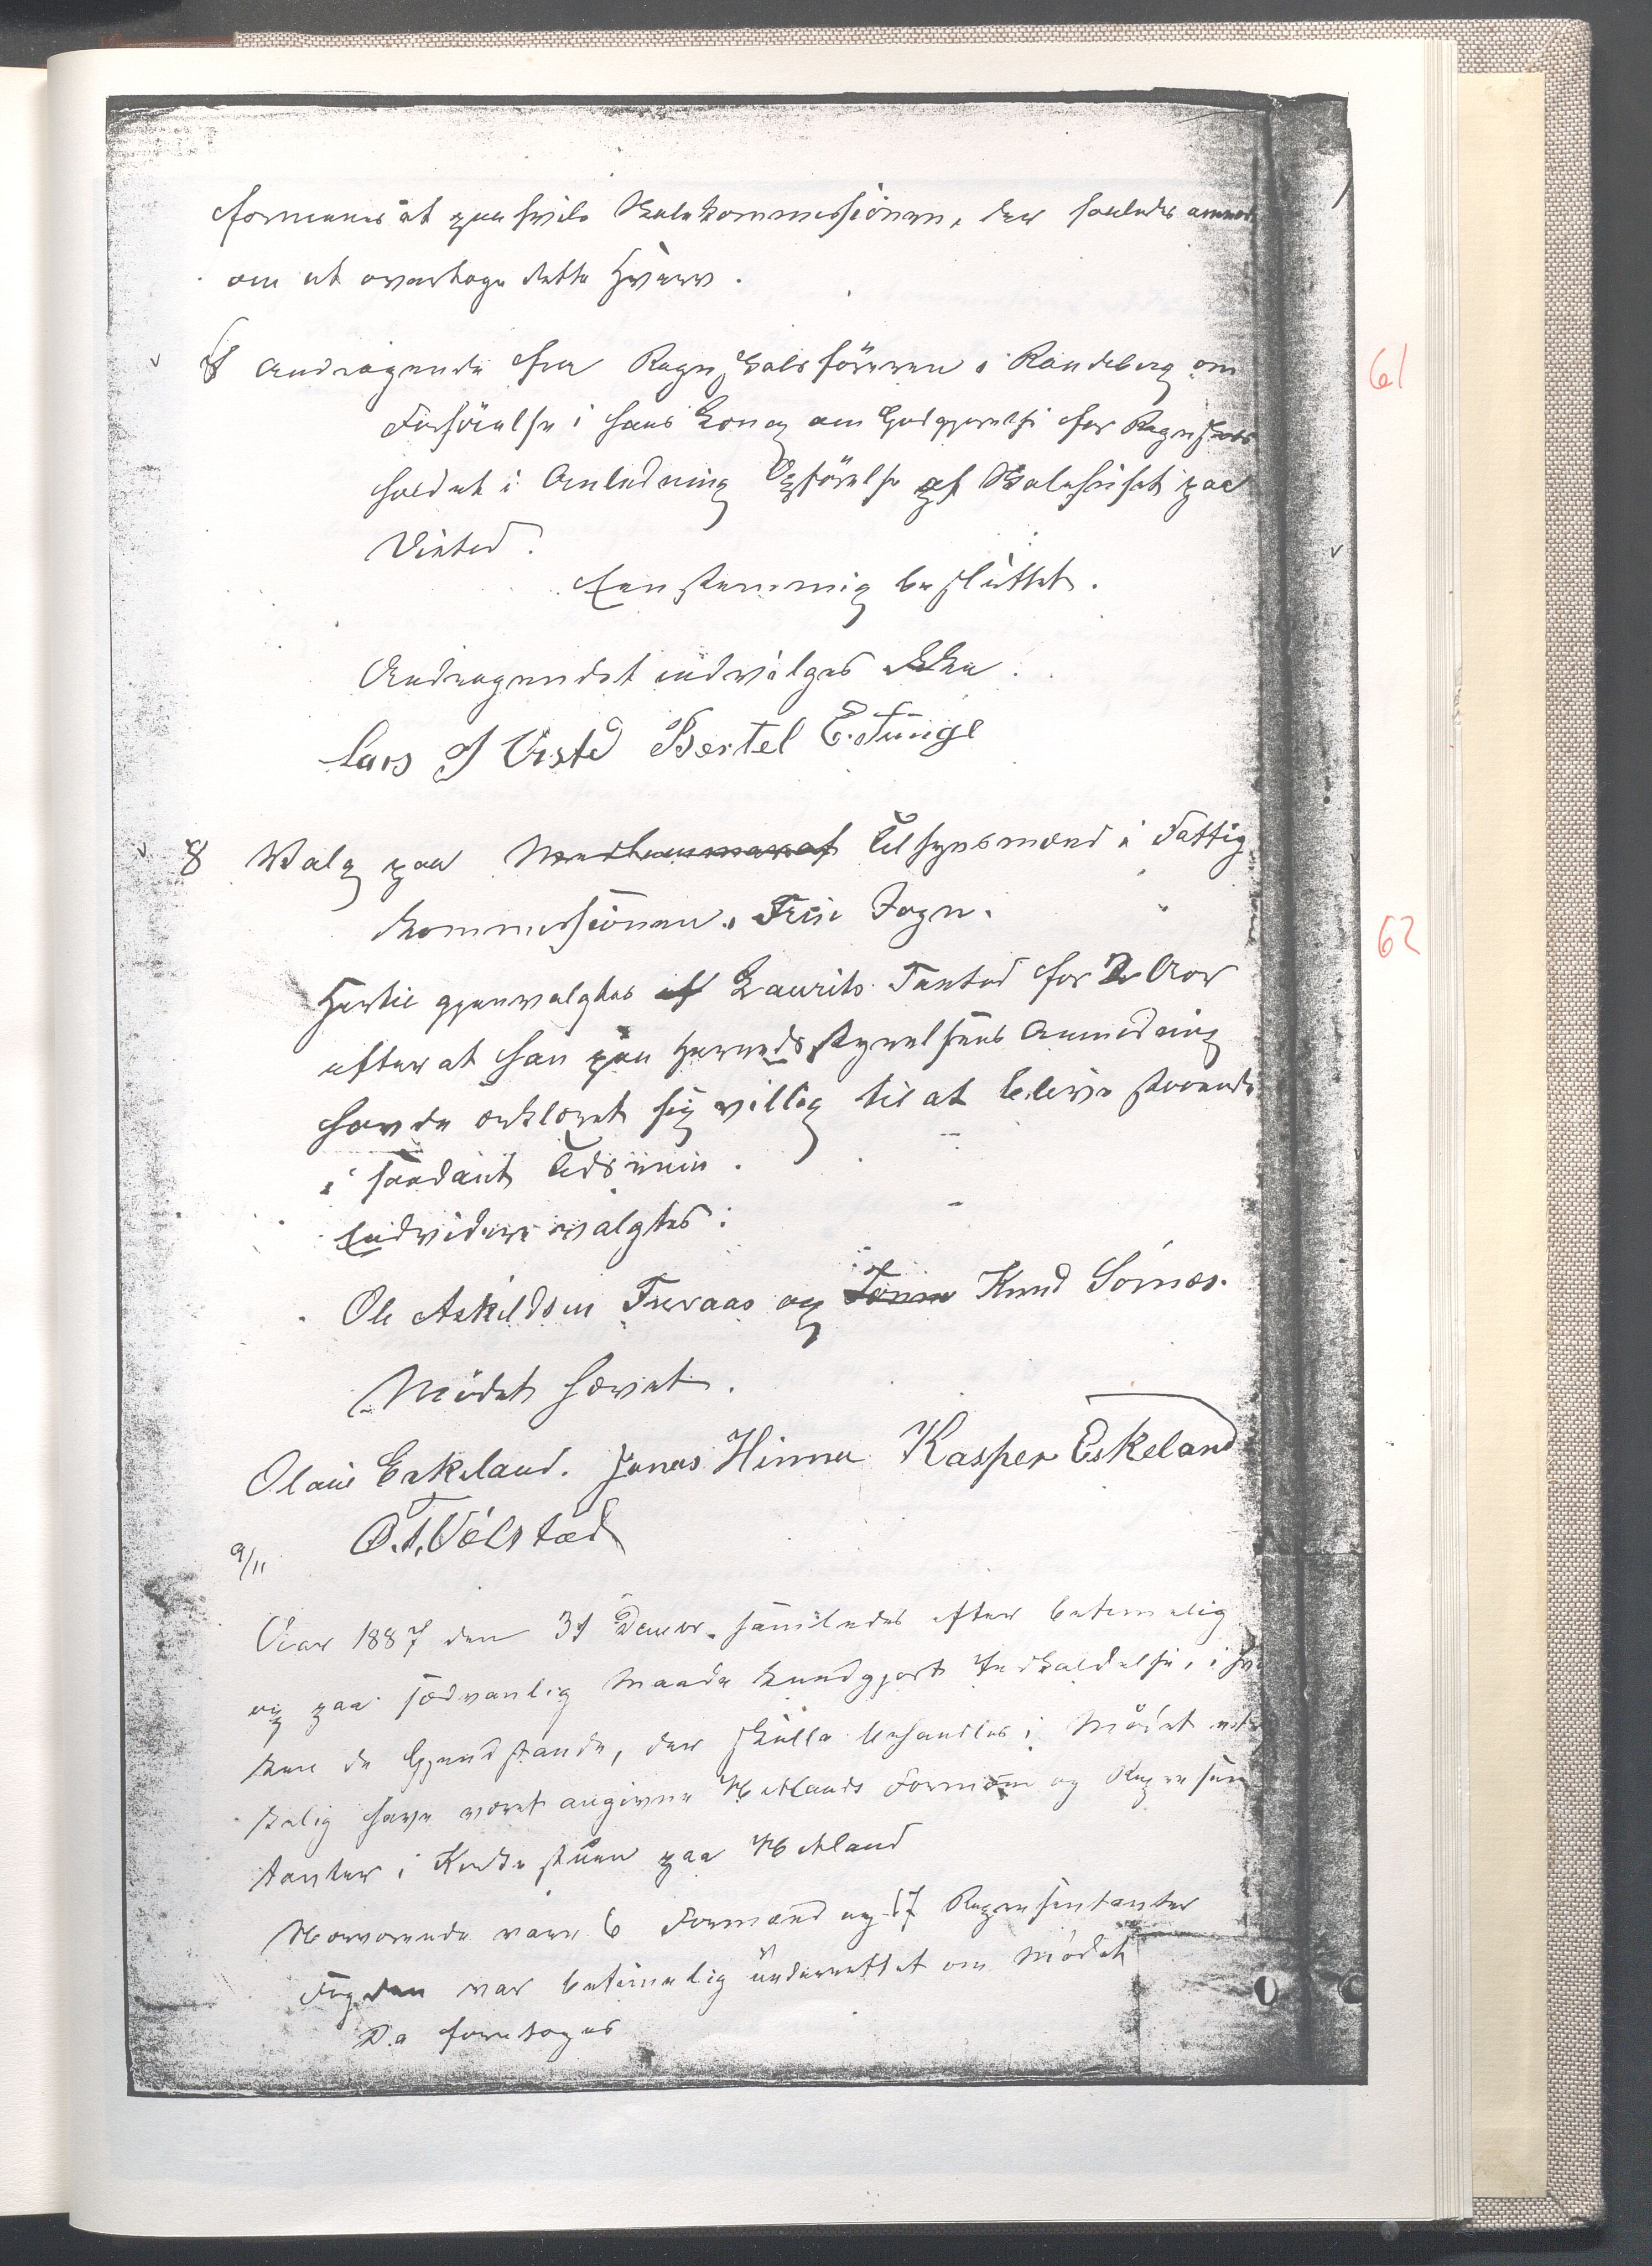 formenes at paahvile Skolekommissionen, der saaledes anmod
om at overtage dette Hverv.
7 Andragende fra Regnskabsføreren i Randeberg om
Forhøielse i hans Løn og om Godtgjørelse for Regnskabs
holdet i Anledning Opførelse af Skolehuset paa
Visted.
Eenstemmig besluttet.
Andragendet indvilges ikke.
Lars J Visted Bertel E. Tunge
8 Valg paa Medlemmer af Tilsynsmænd i Fattig
kommissionen, Frue Sogn.
Hertil gjenvalgtes af Laurits Tasted for 2 Aar
efter at han paa Herredsstyrelsens Anmodning
havde erklæret sig villig til at blive staaende
i saadant Tidsrum.
Endvidere valgtes:
Ole Askildsen Tveraas og Knud Sørnes.
Mødet hævet.
Olaus Eskeland. Jonas Hinna Kasper Eskeland
O. T. Vølstad
9/11
Aar 1887 den 31 Decmbr. samledes efter betimelig
og paa sædvanlig Maade kundgjort Indkaldelse, i hvi
ken de Gjenstande, der skulle behandles i Mødet ud
kelig have været angivne Hetlands Formænd og Repræsen
tanter i Redestuen paa Hetland
Nærværende vare 6 Formænd og 17 Repræsentanter
Fogden var betimelig underrettet om Mødet
Da foretoges
61
62